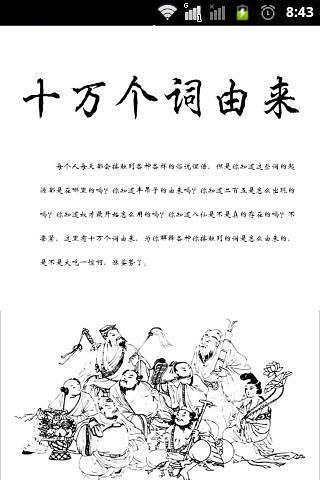 8:43
十万个词由来
每个人每天都会接触到各种各样的俗语俚语，但是你知道这些词的起
源都是在哪里的吗？你知道半吊子的由来吗？你知道二百五是怎么出现的
吗？你知道奴才最开始怎么用的吗？你知道八仙是不是真的存在的吗？不
要紧，这里有十万个词由来，为你解释各种你接触到的词是怎么由来的，
是不是大吃一惊啊，涨姿势了。